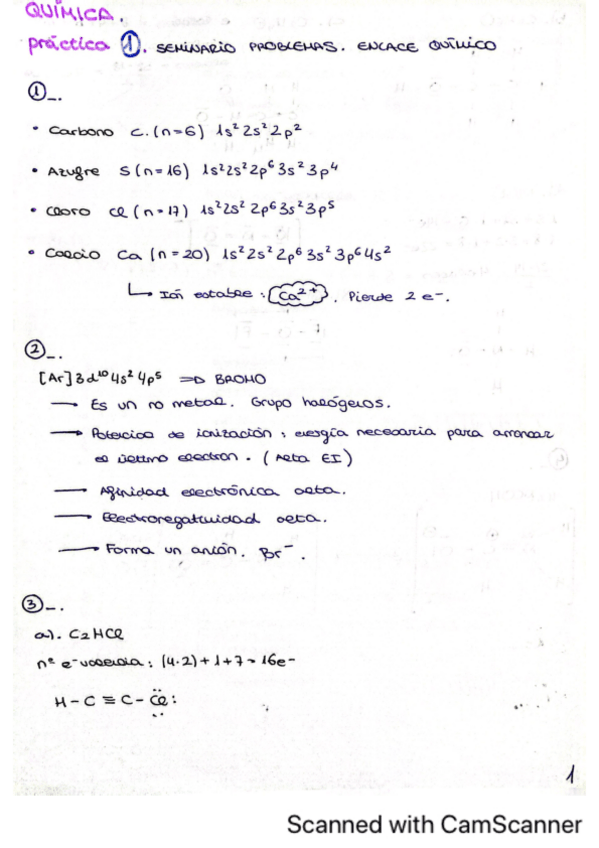 QUÍMICA.
práctica ①. SEMINARIO PROBLEMAS. ENLACE QUÍMICO
①_.
• Carbono C. (n=6) 1s² 2s² 2p²
• Azufre S (n=16) 1s² 2s² 2p⁶ 3s² 3p⁴
• Cloro Cl (n=17) 1s² 2s² 2p⁶ 3s² 3p⁵
• Calcio Ca (n=20) 1s² 2s² 2p⁶ 3s² 3p⁶ 4s²
↳ Ión estable : Ca²⁺. Pierde 2 e⁻.
②_.
[Ar] 3d¹⁰ 4s² 4p⁵ ⇒ BROMO
→ Es un no metal. Grupo halógenos.
→ Potencial de ionización : energía necesaria para arrancar
el último electron. (Alta EI)
→ Afinidad electrónica alta.
→ Electronegatividad alta.
→ Forma un anión. Br⁻.
③_.
a). C₂HCl
nº e⁻ valencia : (4·2) + 1 + 7 = 16e⁻
H - C ≡ C - Cl:
1
Scanned with CamScanner